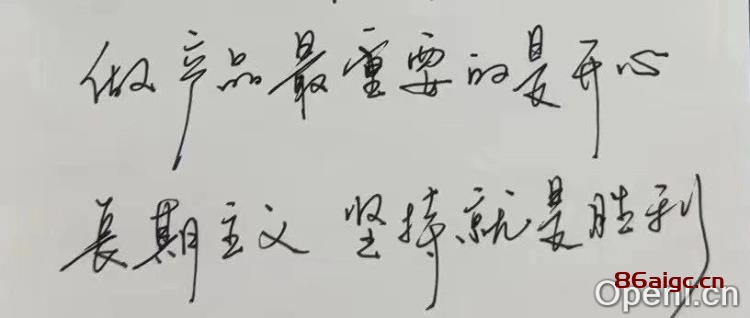 做产品最重要的是开心
長期主义 坚持就是胜利
86aigc.cn
OpenI.cn